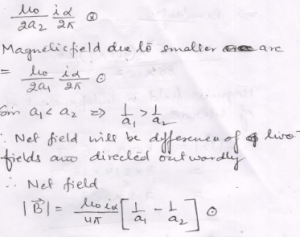 μ₀/2a₂ iα/2π ⊗
Magnetic field due to smaller arc
= μ₀/2a₁ iα/2π ⊙
Sin a₁ < a₂ ⇒ 1/a₁ > 1/a₂
∴ Net field will be difference of two
fields and directed outwardly
∴ Net field
|B⃗| = μ₀iα/4π [1/a₁ - 1/a₂] ⊙